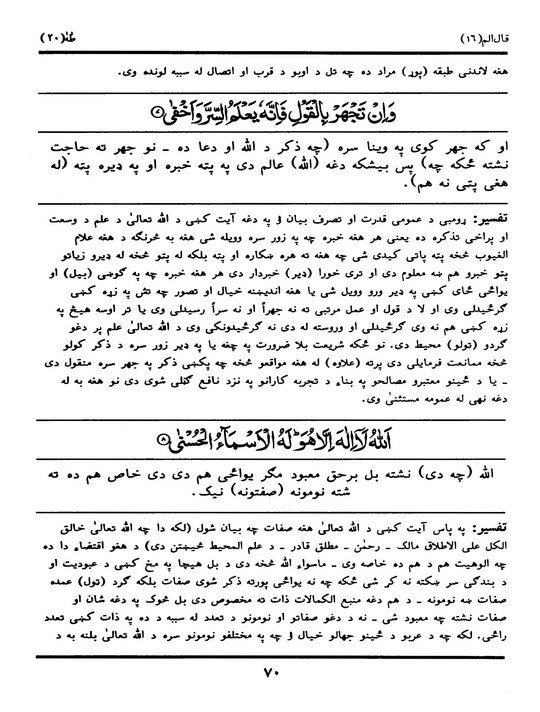 قال الم(١٦)
طٰهٰ(٢٠)
هغه لاندنی طبقه (پوړ) مراد ده چه تل د اوبو د قرب او اتصال له سببه لونده وی.
وَاِنْ تَجْهَرْ بِالْقَوْلِ فَاِنَّهٗ يَعْلَمُ السِّرَّ وَاَخْفٰى ۷
او که جهر کوی په وینا سره (چه ذکر د الله او دعا ده ـ نو جهر ته حاجت
نشته ځکه چه) پس بیشکه دغه (الله) عالم دی په پته خبره او په ډیره پته (له
هغی پتی نه هم).
تفسیر: ړومبی د عمومی قدرت او تصرف بیان ؤ په دغه آیت کښی د الله تعالیٰ د علم د وسعت
او پراخی تذکره ده یعنی هر هغه خبره چه په زور سره وویله شی هغه به څرنگه د هغه علام
الغیوب څخه پته پاتی کیدی شی چه هغه ته هره ښکاره او پته بلکه له پتو څخه له ډیرو زیاتو
پتو خبرو هم ښه معلوم دی او تری خورا (ډیر) خبردار دی هر هغه خبره چه په گوښی (بیل) او
یواځی ځای کښی په ډیر ورو وویل شی یا هغه اندیښنه خیال او تصور چه تش په زړه کښی
گرځیدلی وی او لا د قول او عمل مرتبی ته نه جهراً او نه سراً رسیدلی وی یا تر اوسه هیڅ په
زړه کښی هم نه وی گرځیدلی او وروسته له دی نه گرځیدونکی وی د الله تعالیٰ علم پر دغو
گردو (تولو) محیط دی. نو ځکه شریعت بلا ضرورت په چغه یا په ډیر زور سره د ذکر کولو
څخه ممانعت فرمایلی دی پرته (علاوه) له هغه مواقعو څخه چه پکښی ذکر په جهر سره منقول دی
ـ یا د ځینو معتبرو مصالحو په بناء د تجربه کارانو په نزد نافع گڼلی شوی دی نو هغه به له
دغه نهی له عمومه مستثنیٰ وی.
اَللّٰهُ لَآ اِلٰهَ اِلَّا هُوَ ؕ لَهُ الْاَسْمَآءُ الْحُسْنٰى ۸
الله (چه دی) نشته بل برحق معبود مگر یواځی هم دی دی خاص هم ده ته
شته نومونه (صفتونه) نیک.
تفسیر: په پاس آیت کښی د الله تعالیٰ هغه صفات چه بیان شول (لکه دا چه الله تعالیٰ خالق
الکل علی الاطلاق مالک ـ رحمٰن ـ مطلق قادر ـ د علم المحیط څیښتن دی) د هغو اقتضاء دا ده
چه الوهیت هم د هم ده خاصه وی ـ ماسواء الله څخه دی د بل هیچا په مخ کښی د عبودیت او
د بندگی سر ښکته نه کړ شی ځکه چه نه یواځی پورته ذکر شوی صفات بلکه گرد (تول) عمده
صفات ښه نومونه ـ د هم دغه منبع الکمالات ذات ته مخصوص دی بل څوک په دغه شان او
صفات نشته چه معبود شی ـ نه د دغو صفاتو او نومونو د تعدد له سببه د ده په ذات کښی تعدد
راځی. لکه چه د عربو د ځینو جهالو خیال ؤ چه په مختلفو نومونو سره د الله تعالیٰ بلنه به د
٧٠